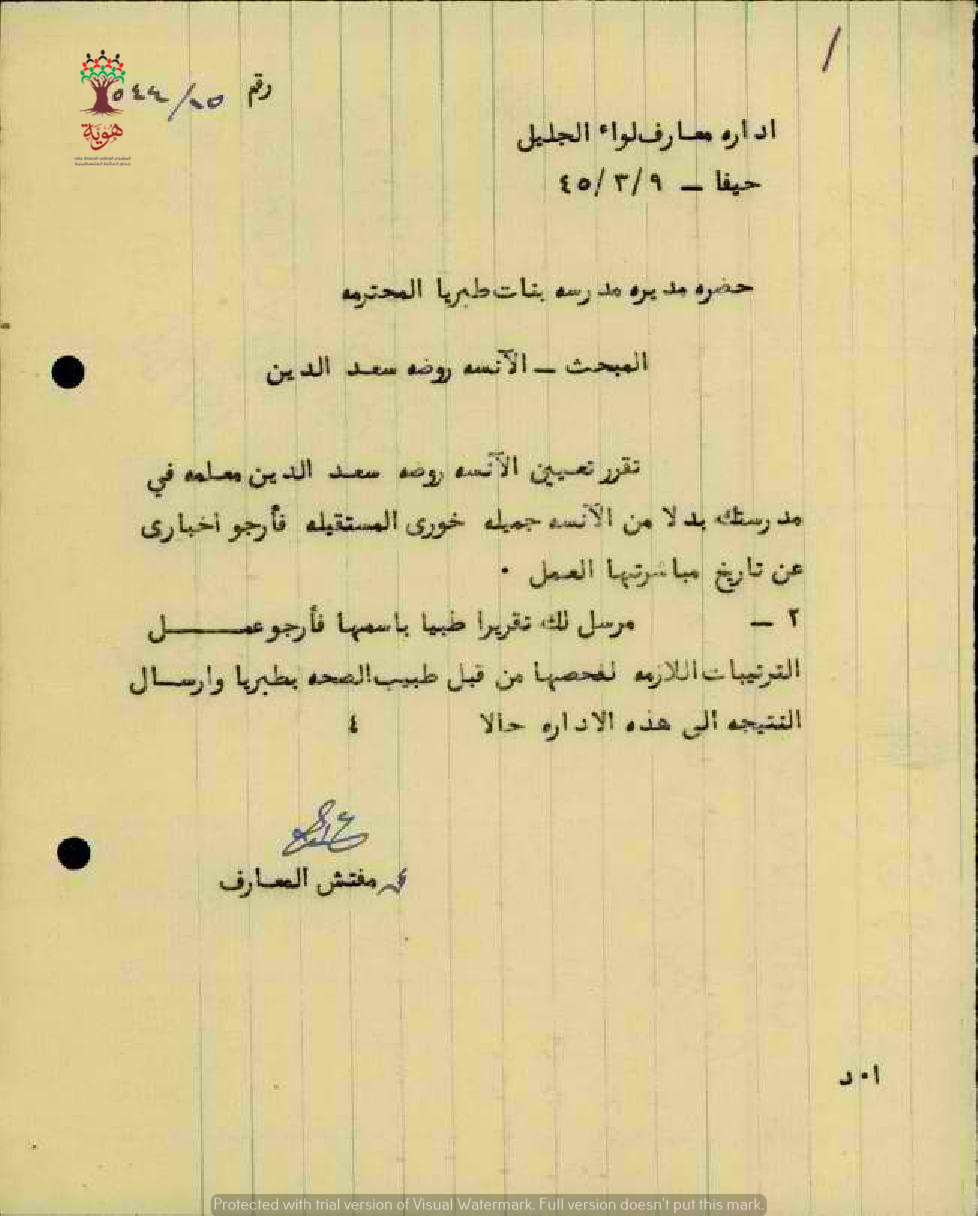 رقم
اداره معارف لواء الجليل
حيفا – ٩/٣/٤٥
حضره مديره مدرسه بنات طبريا المحترمه
المبحث – الآنسه روضه سعد الدين
تقرر تعيين الآنسه روضه سعد الدين معلمه في
مدرستك بدلا من الآنسه جميله خورى المستقيله فأرجو اخبارى
عن تاريخ مباشرتها العمل ٠
٢ – مرسل لك تقريرا طبيا باسمها فأرجو عمــــل
الترتيبات اللازمه لفحصها من قبل طبيب الصحه بطبريا وارسـال
النتيجه الى هذه الاداره حالا ٤
مفتش المعارف
ا٠د
هوية
Protected with trial version of Visual Watermark. Full version doesn't put this mark.